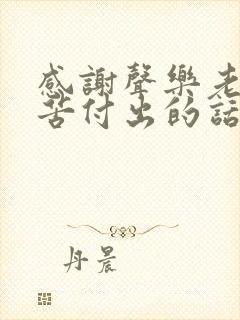 感謝聲樂老
苦付出的話
丹晨